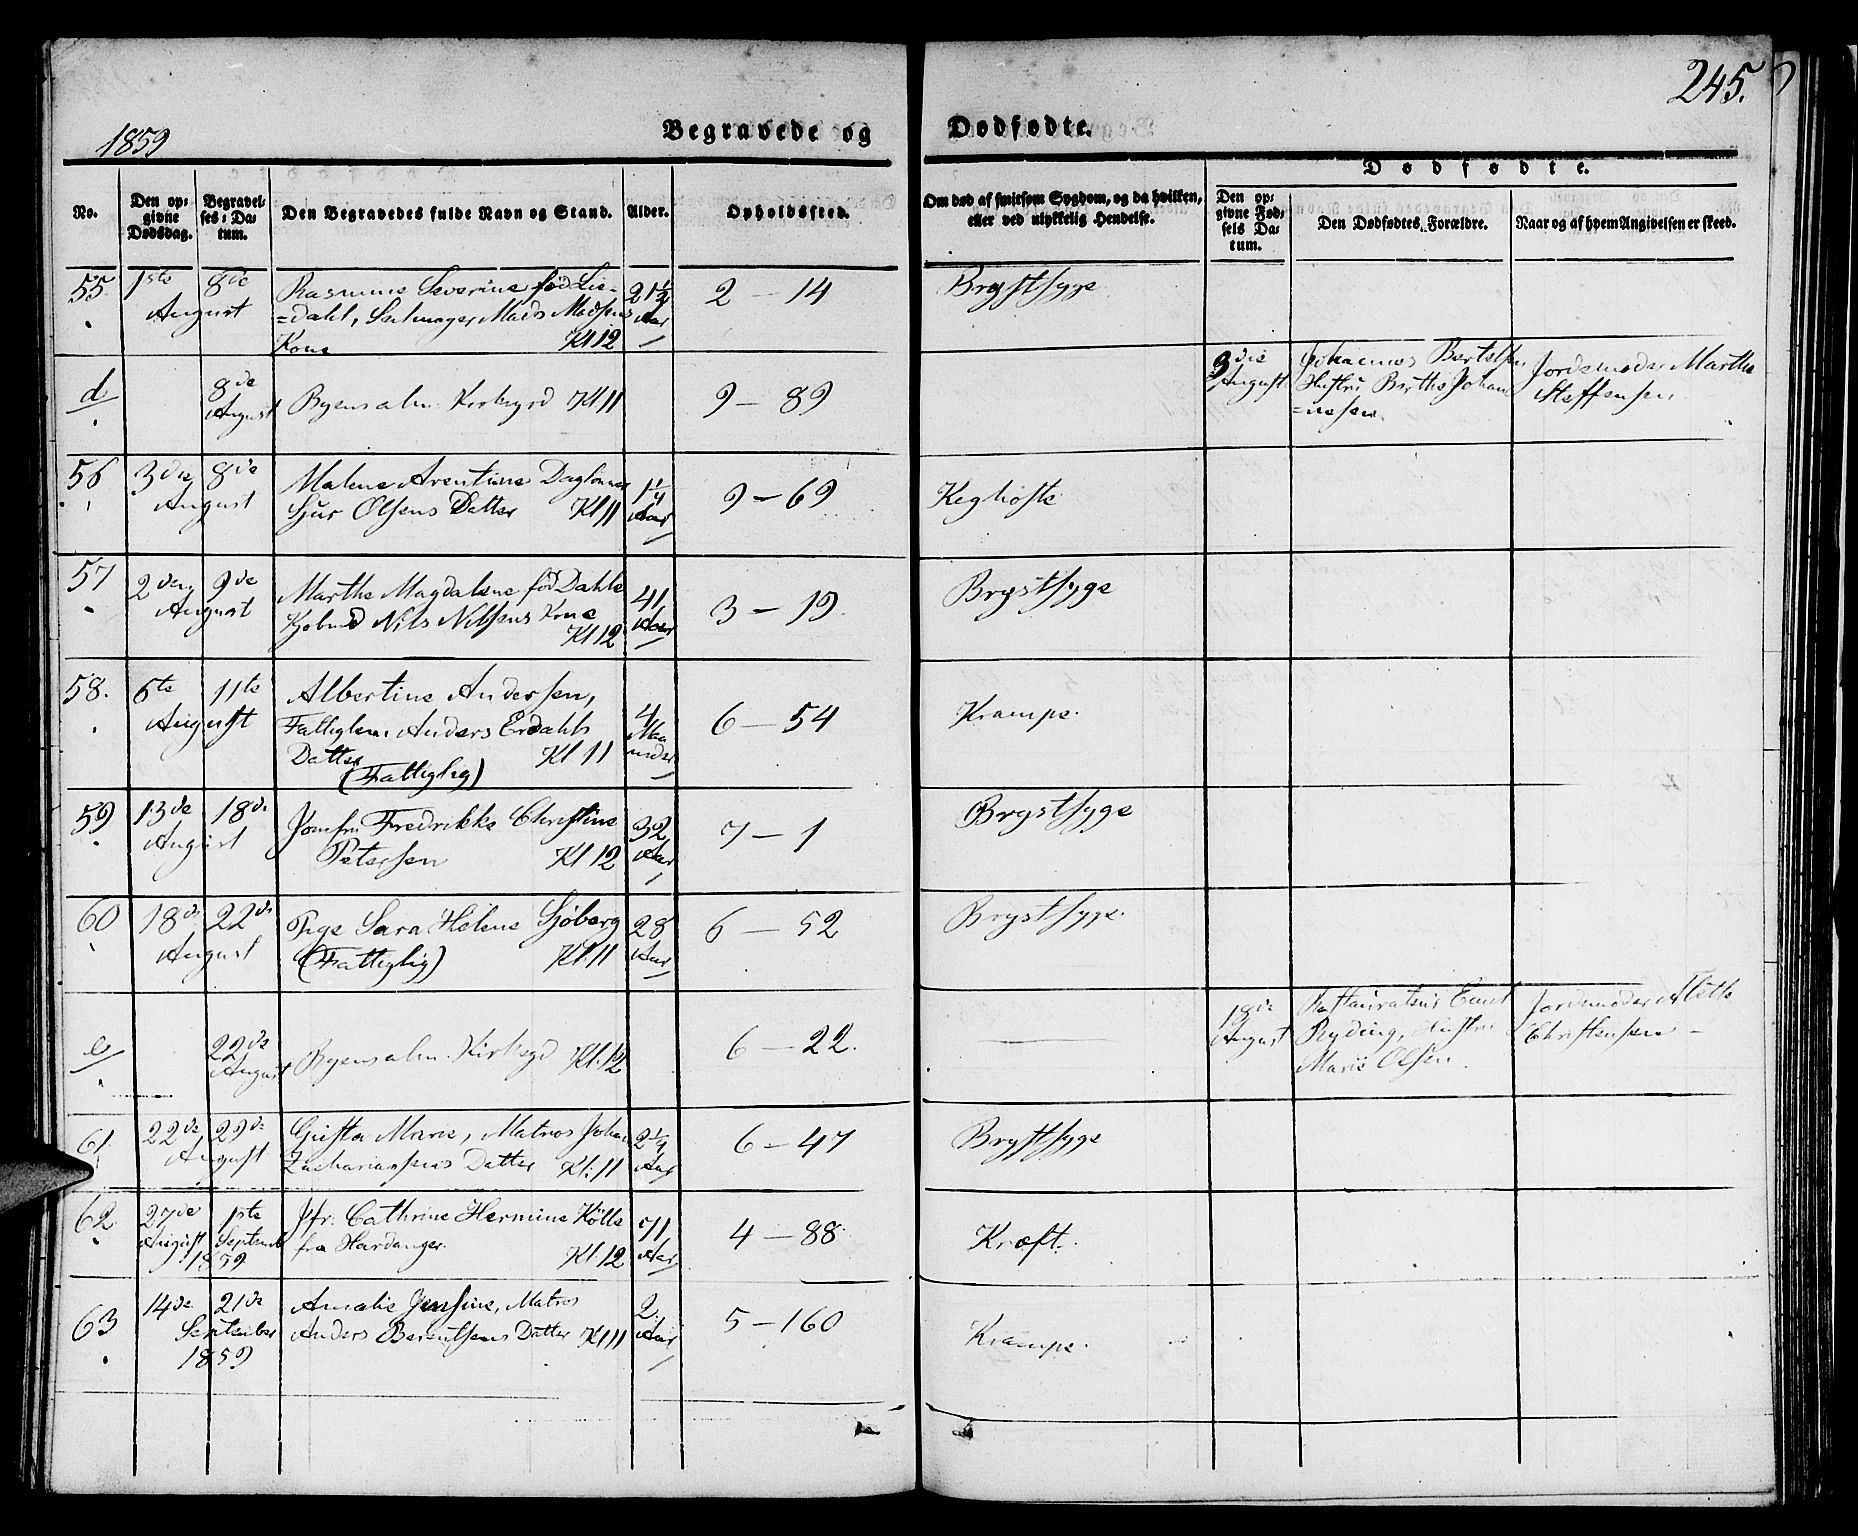 245.
1859
Begravede og Dødfødte.
Dødfødte.
No.
Den op-
givne
Dødsdag.
Begravel-
ses-Da-
tum.
Den Begravedes fulde Navn og Stand.
Alder.
Opholdssted.
Om død af smitsom Sygdom, og da hvilken,
eller ved ulykkelig Hendelse.
Den op-
givne Fød-
sels Da-
tum.
Den Dødfødtes Forældre.
Naar og af hvem Angivelsen er skeed.
55. 1ste 8de Rasmine Severine fød Lie- 21½ 2 – 14 Brystsyge
August =dahl, Mads Madsens Aar
Kone Kl 12
d 8de August Byens alm. Kirkegrd Kl 11 9 – 89 3die August Johannes Bertelsen Hustru Birthe Johan=nesen. Jordemoder Marthe Steffensen
56 3die 8de Malene Arentine Daglønner 1¼ 9 – 69 Kighoste
August Sjur Olsens Datter Kl 11 Aar
57 2den 9de Marthe Magdalene fød Dahle 41 3 – 19. Brystsyge
August Kjøbmd Nils Nilsens Kone Aar
Kl 12
58. 6te 11te Albertine Andersen, 4 6 – 54 Krampe.
August Fattiglem Anders Erdahls Maa
Datter Kl 11 neder
(Fattiglig)
59 13de 18de Jomfru Fredrikke Christine 32 7 – 1 Brystsyge
August Petersen Kl 12 Aar
60 18de 22de Pige Sara Helene Sjøberg 28 6 – 52 Brystsyge.
August (Fattiglig) Kl 11 Aar
e 22de August Byens alm. Kirkegd Kl. 12 6 – 22. 18de August Ryding, Hustru Marie Olsen. Jordemoder Alette Christensen –
61 22de 29de Gusta Marie, Matros Johan 2¼ 6 – 47 Brystsyge
August Zachariassens Datter Kl: 11 Aar
62 27de 1ste Jfr. Cathrine Hermine Kölle 71 4 – 88. Kræft.
August Septemb fra Hardanger. Kl. 12 Aar
1859
63 14de 21de Amalie Jensine, Matros 2 5 – 160 Krampe.
September Anders Berentsens Datter Kl 11 Aar
1859